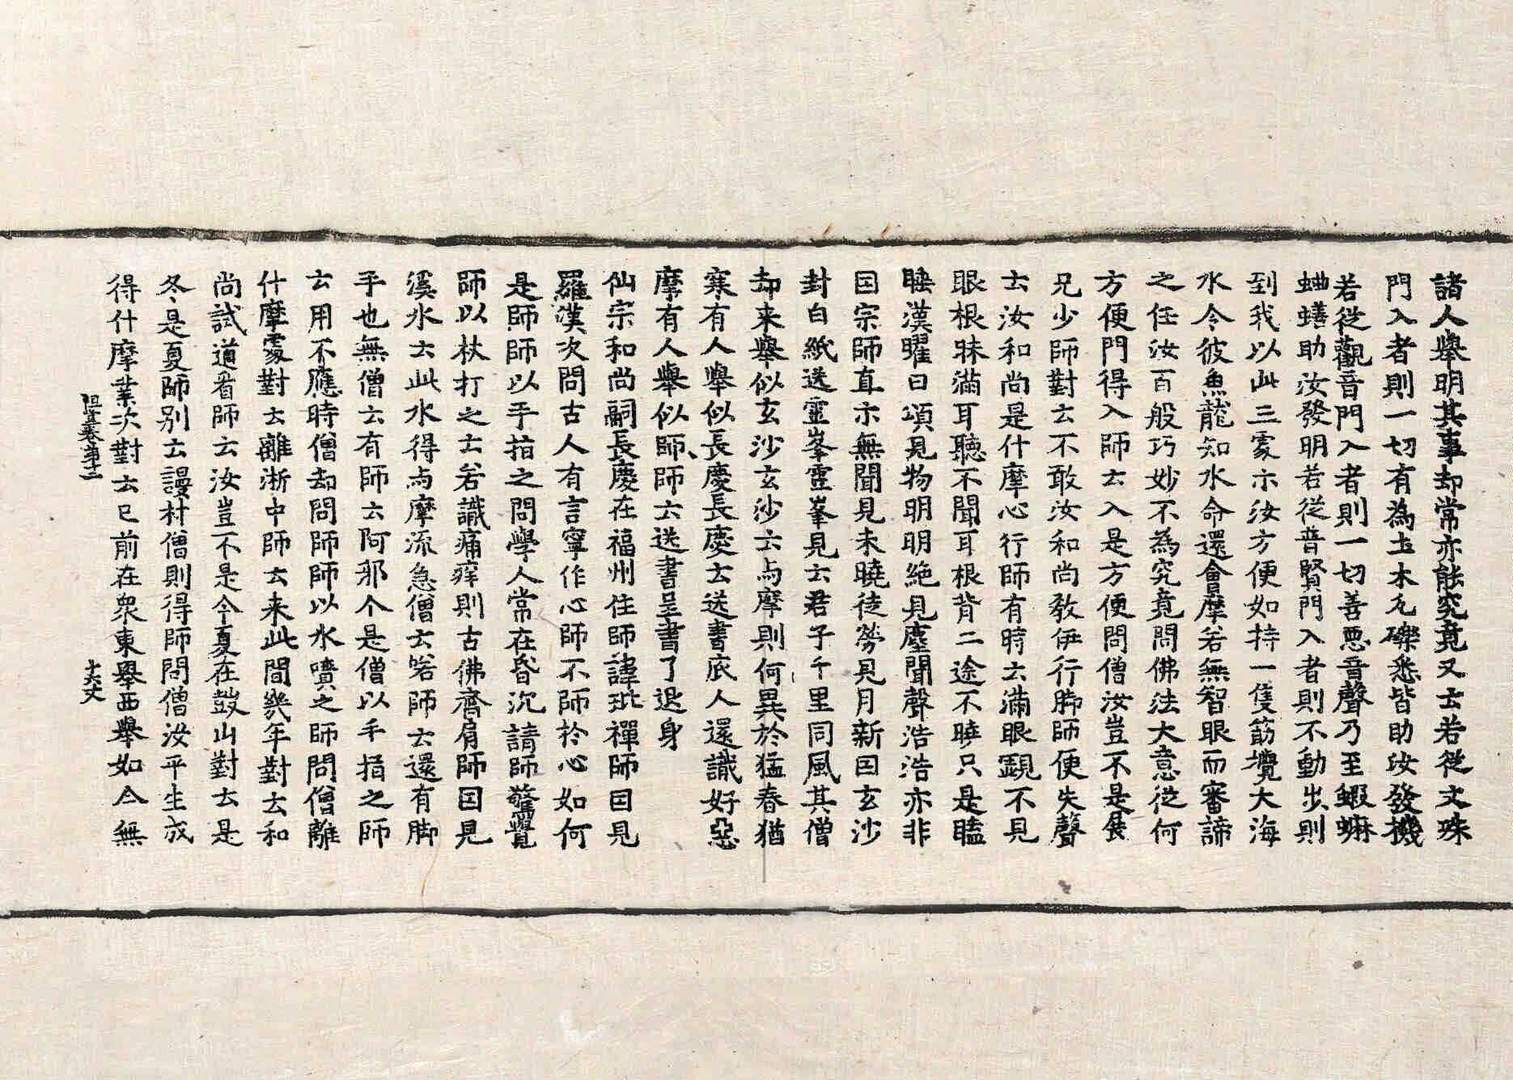 諸人舉明其事却常亦能究竟又士若從文殊
門入者則一切有為土木瓦礫悉皆助汝發機
若從觀音門入者則一切善惡音聲乃至蝦蟆
蚰蟮助汝發明若從普賢門入者則不動步則
到我以此三處示汝方便如持一隻筯攪大海
水令彼魚龍知水命還會摩若無智眼而審諦
之任汝百般巧妙不為究竟問佛法大意從何
方便門得入師云入是方便問僧汝豈不是展
兄少師對云不敢汝和尚教伊行脚師便失聲
云汝和尚是什摩心行師有時云滿眼覷不見
眼根昧滿耳聽不聞耳根背二途不曉只是瞌
睡漢曜日頌見物明明絕見塵聞聲浩浩亦非
因宗師直示無聞見未曉徒勞見月新因玄沙
封白紙送霊峯霊峯見云君子千里同風其僧
却来舉似玄沙玄沙云与摩則何異於猛春猶
寒有人舉似長慶長慶云送書底人還識好惡
摩有人舉似師師云送書呈書了退身
仙宗和尚嗣長慶在福州住師諱玭禪師因見
羅漢次問古人有言寧作心師不師於心如何
是師師以手指之問學人常在昏沉請師驚覺
師以杖打之云若識痛痒則古佛齊肩師因見
溪水云此水得与摩流急僧云喏師云還有脚
手也無僧云有師云阿那个是僧以手指之師
云用不應時僧却問師師以水噴之師問僧離
什摩處對云離淅中師云来此間幾年對云和
尚試道看師云汝豈不是今夏在鼓山對云是
冬是夏師別云謾村僧則得師問僧汝平生成
得什摩業次對云已前在衆東舉西舉如今無
祖堂卷第十三　十六丈